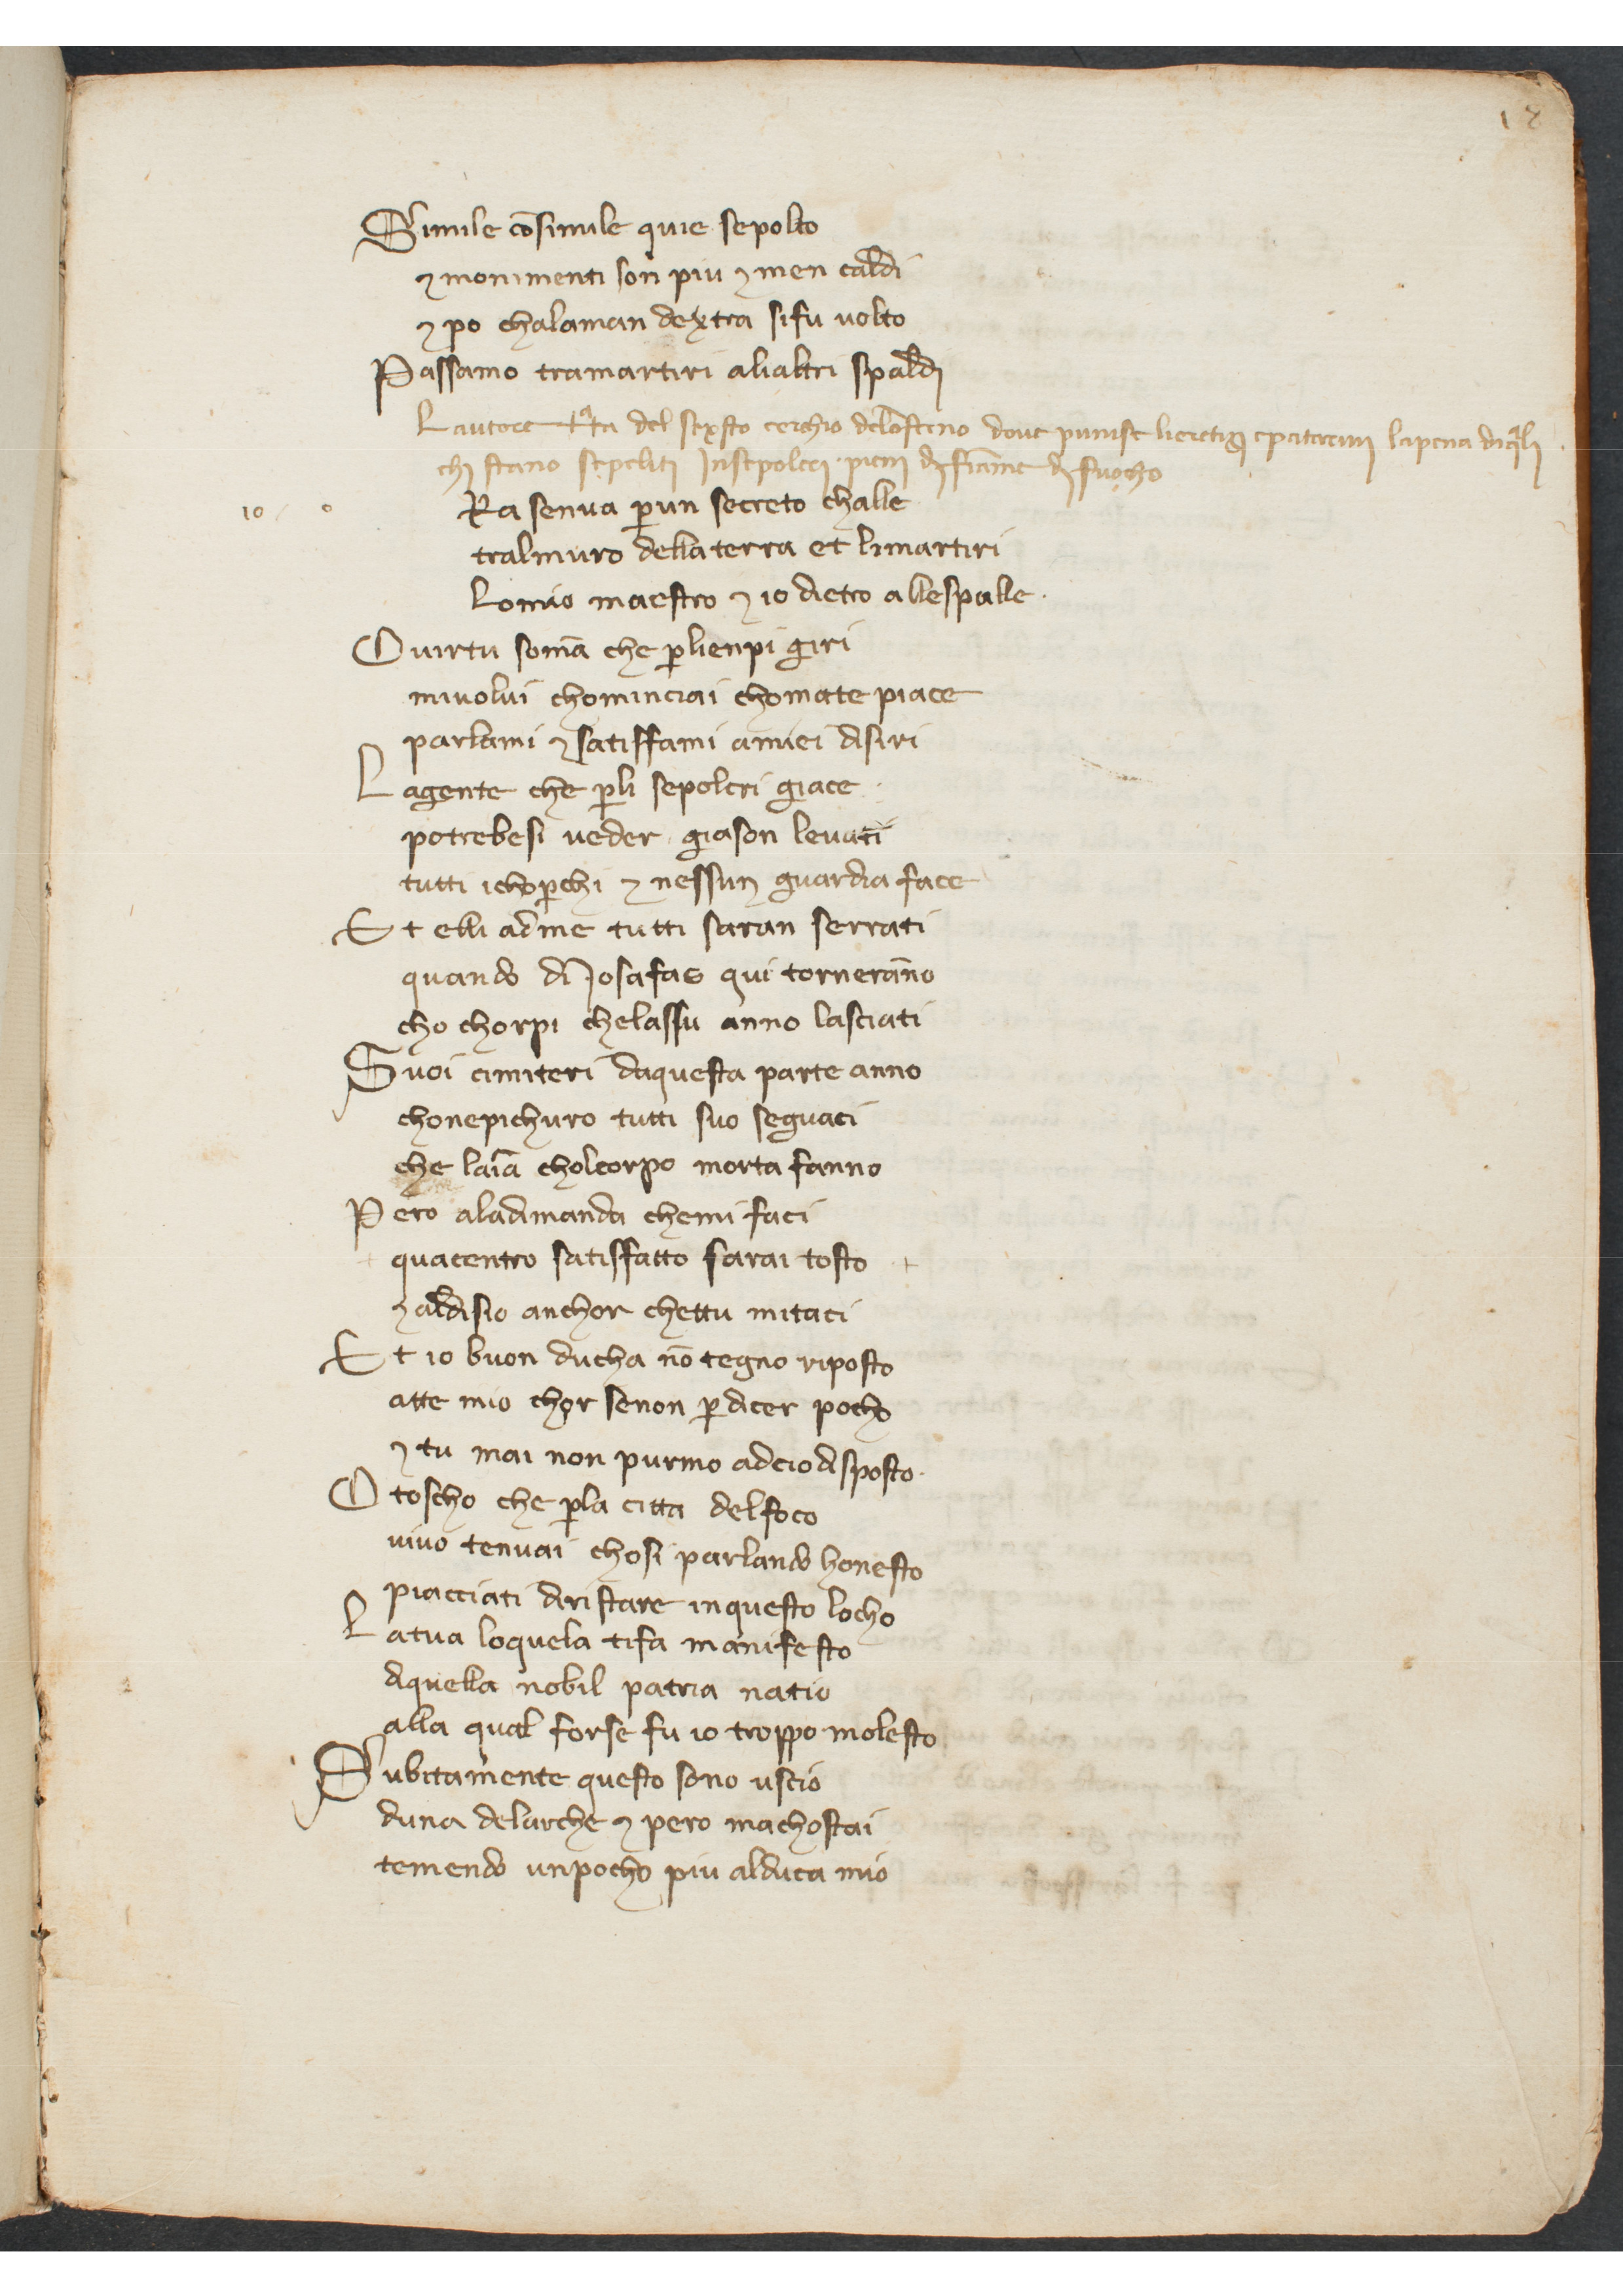 12
Simile cōsimile quie sepolto
⁊ monimenti son piu ⁊ men caldi
⁊ po chalaman dextra sifu uolto
Passamo tramartiri alialtri spaldj
Lautore del sexsto cerchio delonferno doue punise lieretigj epatarini lapena diq̄lj
chj stano sepelitj Insepolcrj pienj dj fiāme dj fuocho
10 o
Ra senua p̱un secreto challe
tralmuro dellaterra et limartiri
Lomio maestro ⁊ io dietro allespalle.
O uirtu somā che p̱lienpi giri
miuolui chominciai chomate piace
parlami ⁊ satisffami amiei disiri
L agente che p̱li sepolcri giace
potrebesi ueder giason leuati
tutti ichop̱chi ⁊ nessun guardia face
E t elli adme tutti saran serrati
quando di Josafas qui tornerāno
cho chorpi chelassu anno lasciati
S uoi cimiteri daquesta parte anno
chonepichuro tutti suo seguaci
che laīa cholcorpo morta fanno
P ero aladimanda chemi faci
quacentro satisffatto sarai tosto
⁊ aldisio anchor chettu mitaci
E t io buon ducha nō tegno riposto
atte mio chor senon p̱dicer pocho
⁊ tu mai non purmo adcio disposto.
O toscho che p̱la citta delfoco
uiuo tenuai chosi parlando honesto
piacciati diristare inquesto locho
L atua loquela tifa manifesto
diquella nobil patria natio
alla qual forse fu io troppo molesto
S ubitamente questo sono uscio
duna delarche ⁊ pero machostai
temendo unpocho piu alduca mio